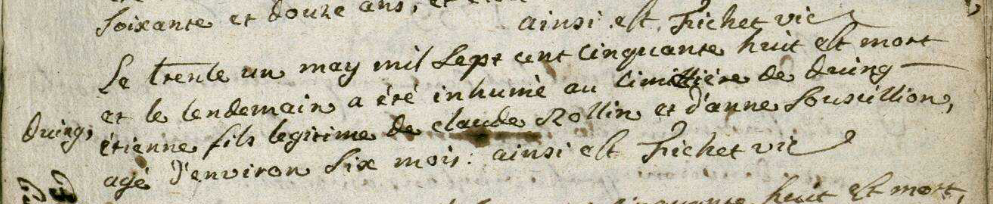 soixante et douze ans,
ainsi est frichet vic
Le trente un may mil sept cent cinquante huit est mort
et le lendemain a été inhumé au cimittière de druing
Druing, étienne fils legitime de claude Rollin et d'anne
agé d'environ six mois. ainsi est frichet vic
huit est mort,